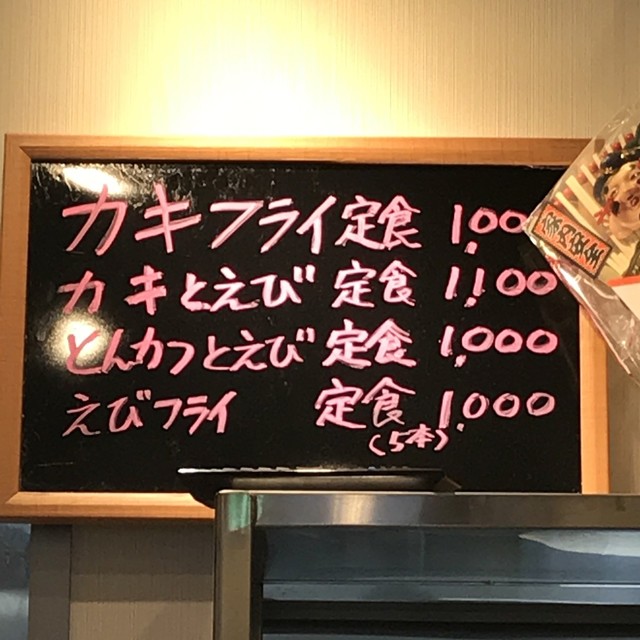 カキフライ定食 1,00
カキとえび定食 1,100
とんカツとえび定食 1,000
えびフライ 定食 1,000
(5本)
家内安全